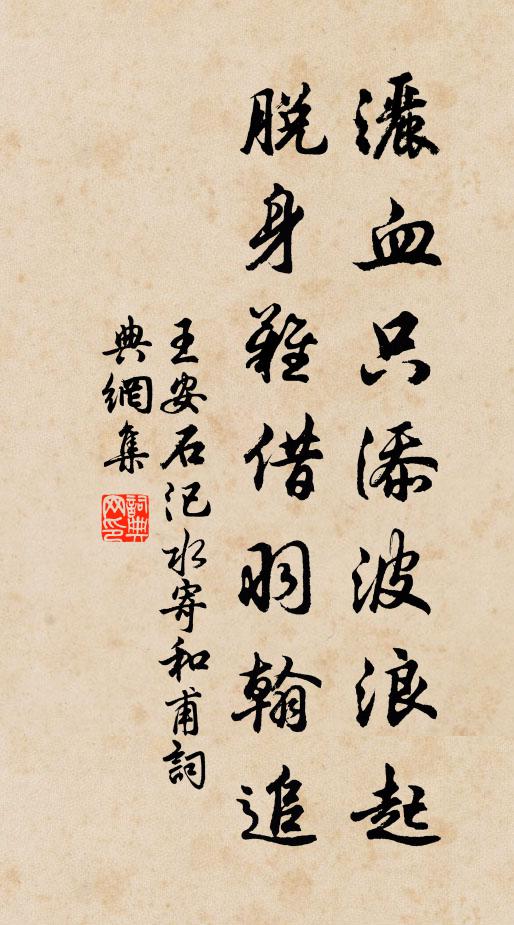 灑血只添波浪起
脫身難借羽翰追
王安石汜水寄和甫詞
典網集
詞典
网印